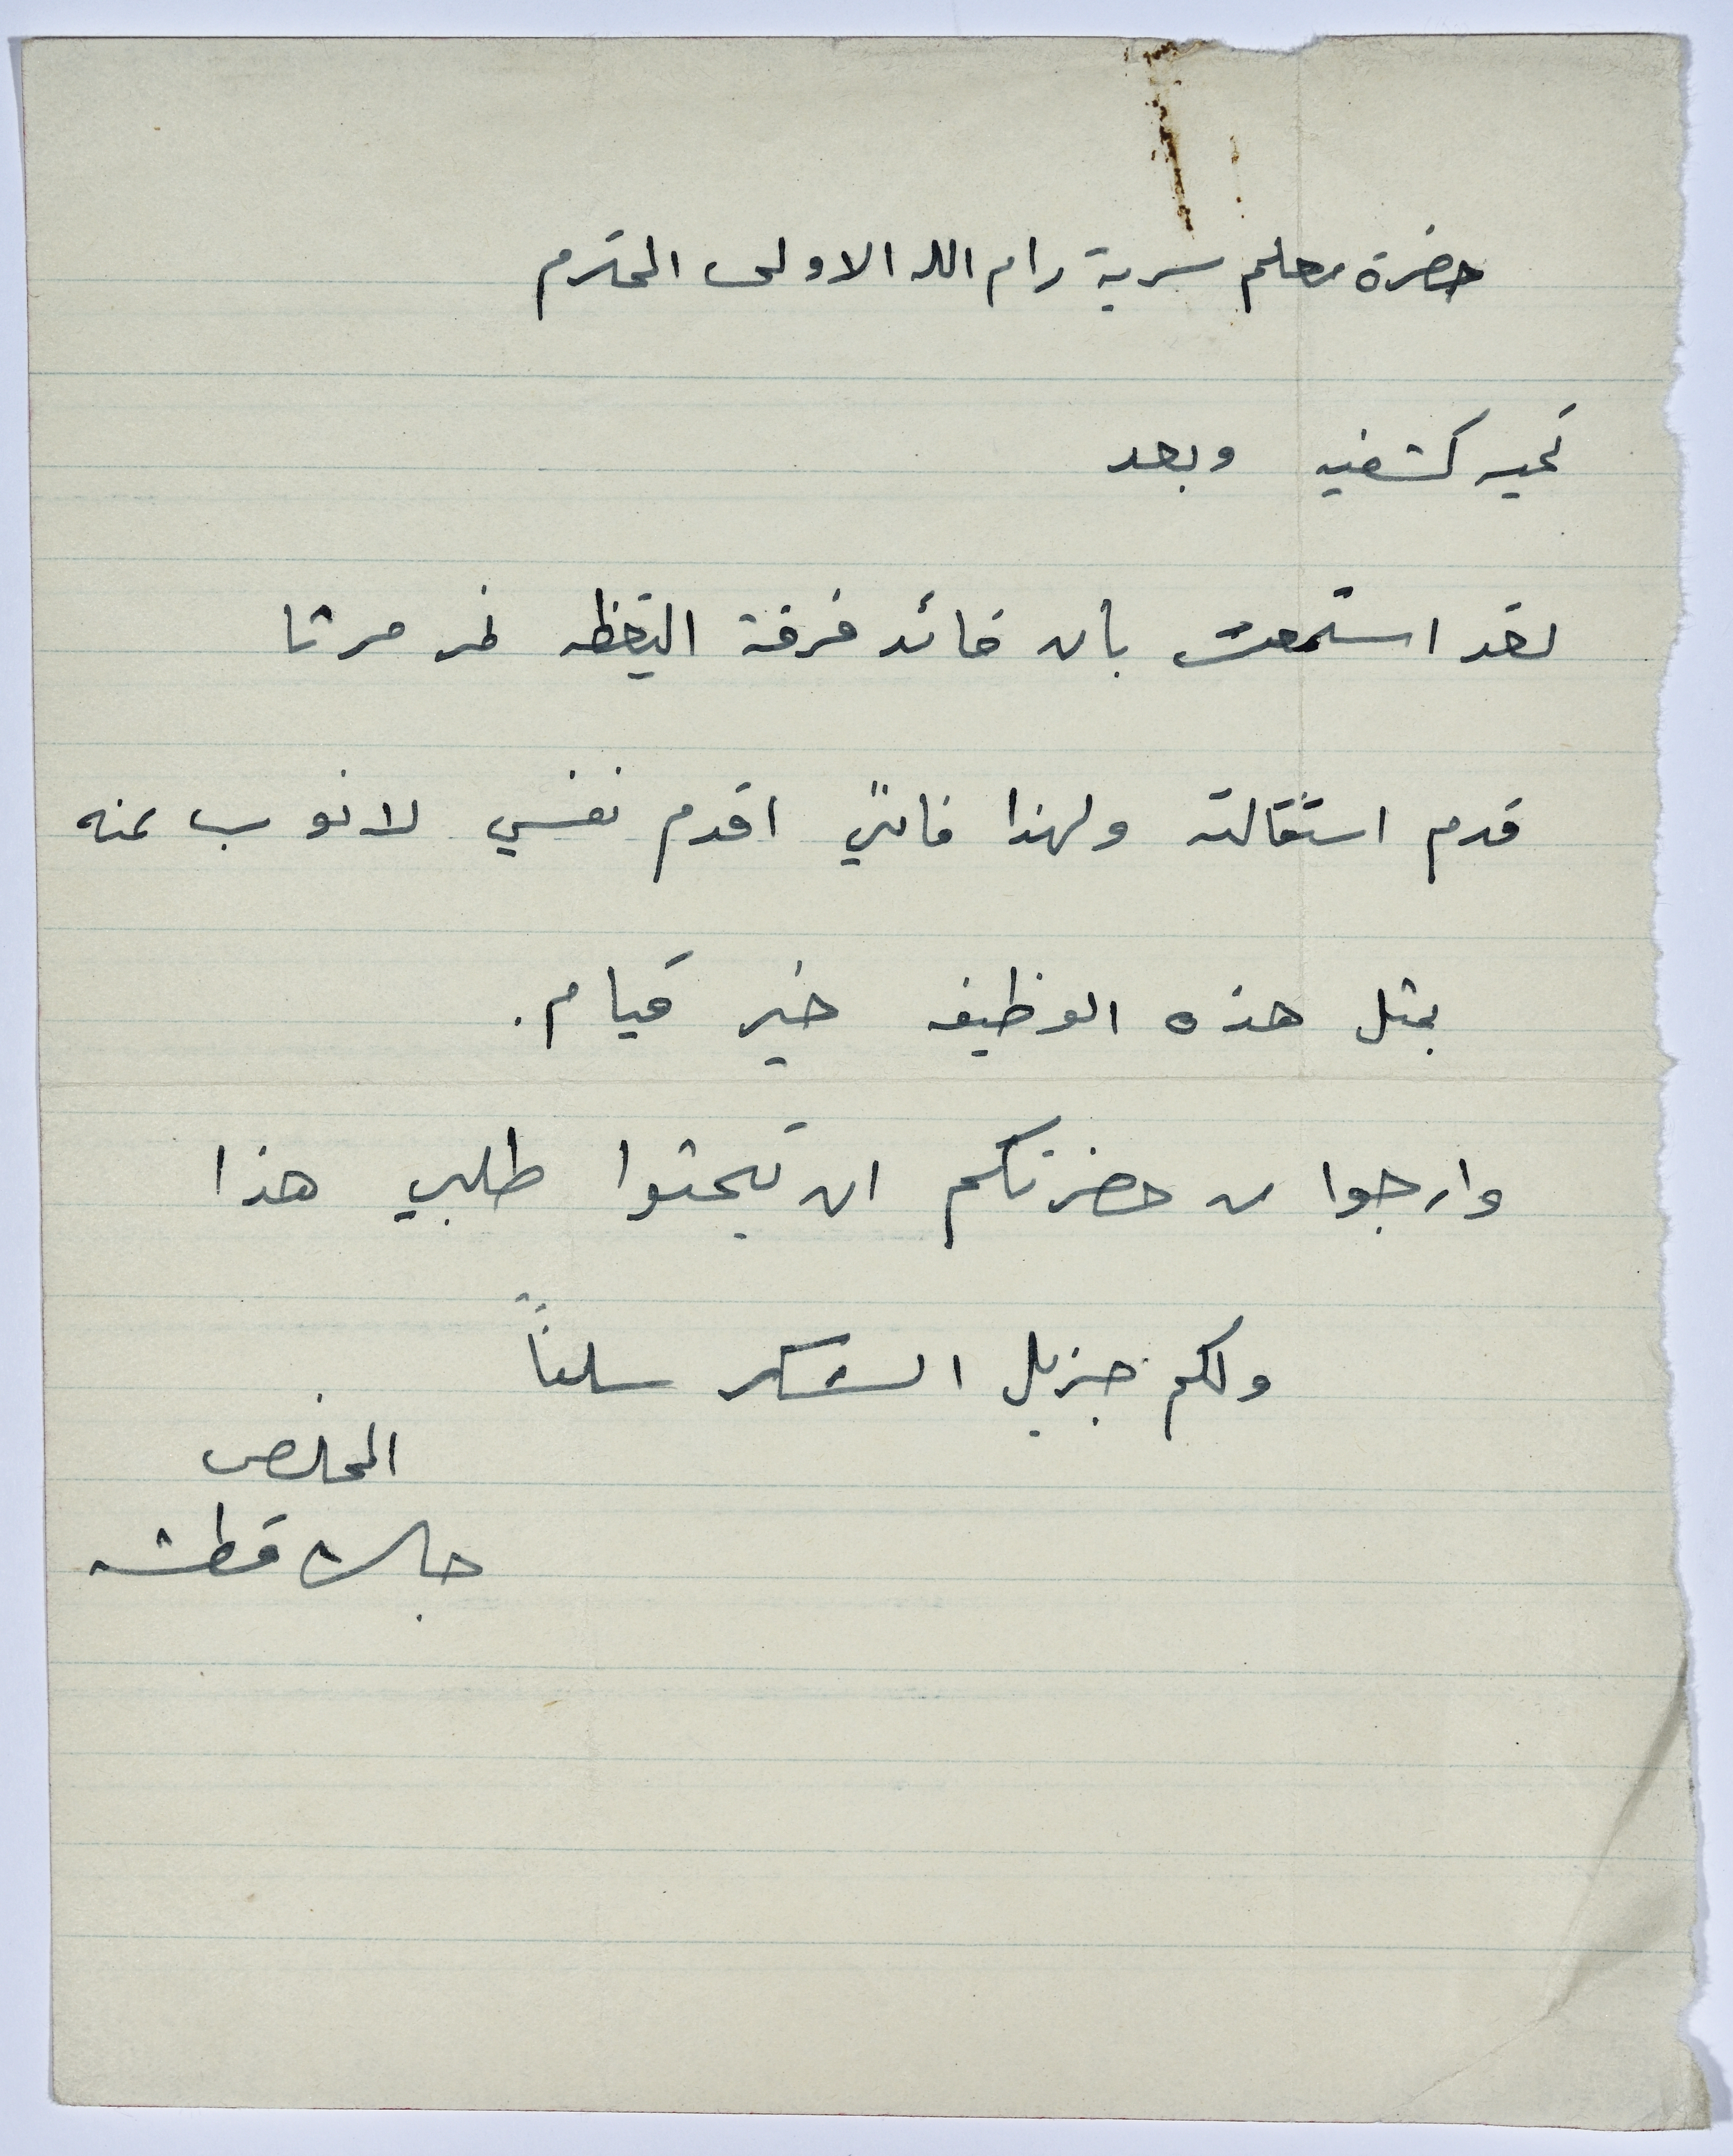 حضرة معلم سرية رام الله الاولى المحترم
تحيه كشفيه وبعد
لقد استمعت بان قائد فرقة اليقظه نمر مرتا
قدم استقالته ولهذا فانني اقدم نفسي لانوب عنه
بمثل هذه الوظيفه خير قيام.
وارجوا من حضرتكم ان تبحثوا طلبي هذا
ولكم جزيل الشكر سلفاً
المخلص
جاك قطشه